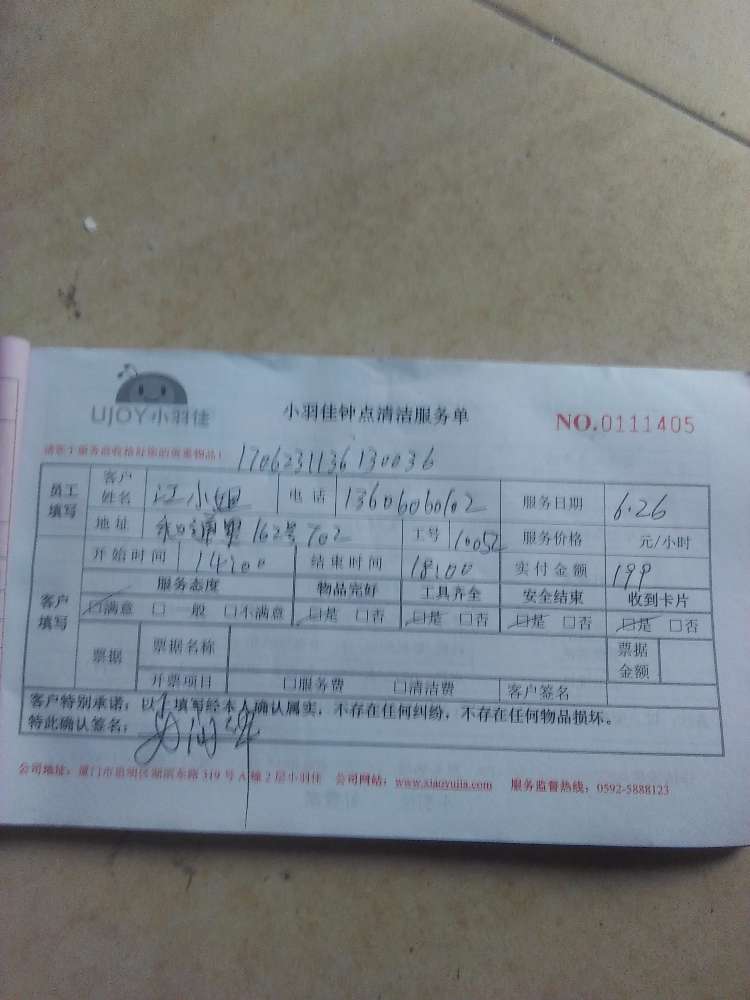 UJOY小羽佳 小羽佳钟点清洁服务单 NO.0111405
请您于服务前收拾好您的贵重物品! 1706231136130036
员工填写 客户姓名 江小姐 电话 13606060102 服务日期 6.26
地址 162号702 工号 10052 服务价格 元/小时
客户填写 开始时间 14:00 结束时间 18:00 实付金额 199
服务态度 物品完好 工具齐全 安全结束 收到卡片
□满意 □一般 □不满意 □是 □否 □是 □否 □是 □否 □是 □否
票据 票据名称 票据金额
开票项目 □服务费 □清洁费 客户签名
客户特别承诺:以上填写经本人确认属实,不存在任何纠纷,不存在任何物品损坏。
特此确认签名:
公司地址:厦门市思明区湖滨东路319号A幢2层小羽佳 公司网站:www.xiaoyujia.com 服务监督热线:0592-5888123